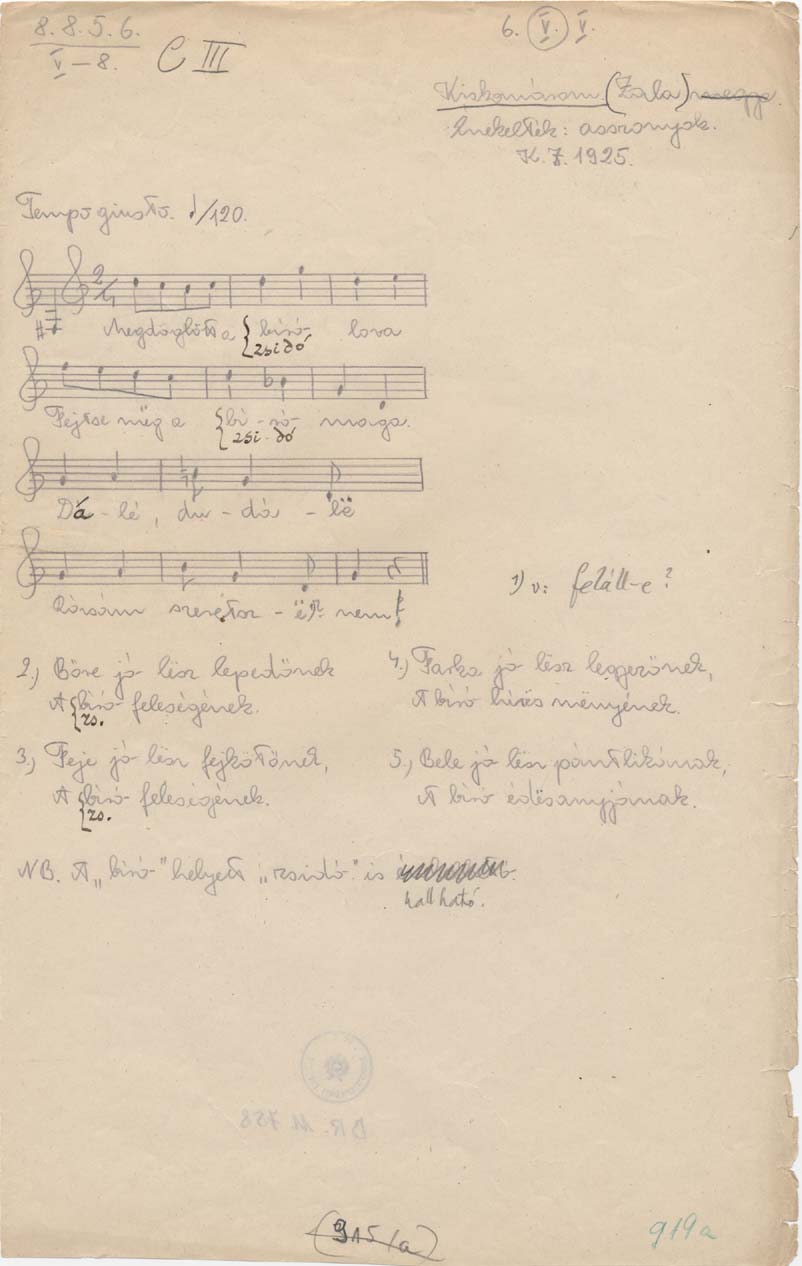 8. 8. 5. 6.
V – 8. C III
6. V. V.
Kiskomárom (Zala) megye.
Énekelték: asszonyok.
K. Z. 1925.
Tempo giusto. /120.
2/4
Megdöglött a bíró- lova
zsidó
Fejtse mëg a bí - ró- maga.
zsi - dó
Dá - lé, du - dá - lë
Rózsám szeretsz - ë 1) nem?
1) v: feláll-e?
2.) Bőre jó lësz lepedőnek
A bíró feleségének.
zs.
3.) Feje jó lësz fejkötőnek,
A bíró feleségének.
zs.
4.) Farka jó lësz legyezőnek,
A bíró híres mënyének.
5.) Bele jó lësz pántlikának,
A bíró édësanyjának.
NB. A „bíró" helyett „zsidó" is
hallható.
BR. 11 758
(915/a)
919a